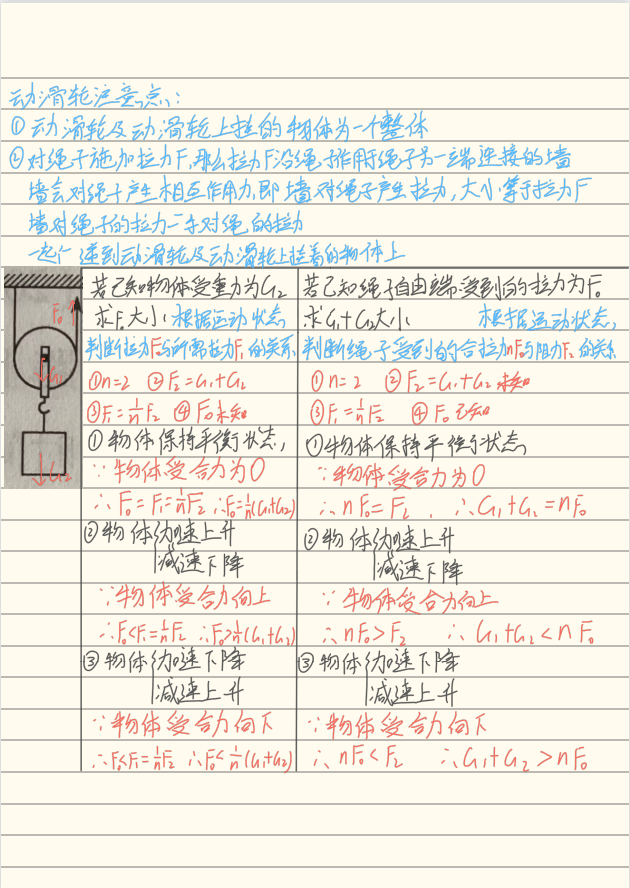 动滑轮注意点:
①动滑轮及动滑轮上挂的物体为一个整体
②对绳子施加拉力F,那么拉力F沿绳子作用绳子另一端连接的墙
墙会对绳子产生相互作用力,即墙对绳子产生拉力,大小等于拉力F
墙对绳子的拉力与手对绳的拉力
一起广递到动滑轮及动滑轮上挂着的物体上
F₀
G₁
G₂
若已知物体受重力为G₂
求F₀大小 根据运动状态
判断拉力F₀与所需拉力F₁的关系
①n=2 ②F₂=G₁+G₂
③F₁=1/nF₂ ④F₀未知
①物体保持平衡状态,
∵物体受合力为0
∴F₀=F₁=1/nF₂ ∴F₀=1/n(G₁+G₂)
②物体加速上升
减速下降
∵物体受合力向上
∴F₀<F₁=1/nF₂ ∴F₀>1/n(G₁+G₂)
③物体加速下降
减速上升
∵物体受合力向下
∴F₀<F₁=1/nF₂ ∴F₀<1/n(G₁+G₂)
若已知绳子自由端受到的拉力为F₀
求G₁+G₂大小 根据运动状态,
判断绳子受到的合拉力nF₀与阻力F₂的关系
①n=2 ②F₂=G₁+G₂未知
③F₁=1/nF₂ ④F₀已知
①物体保持平衡状态
∵物体受合力为0
∴nF₀=F₂, ∴G₁+G₂=nF₀
②物体加速上升
减速下降
∵物体受合力向上
∴nF₀>F₂ ∴G₁+G₂<nF₀
③物体加速下降
减速上升
∵物体受合力向下
∴nF₀<F₂ ∴G₁+G₂>nF₀